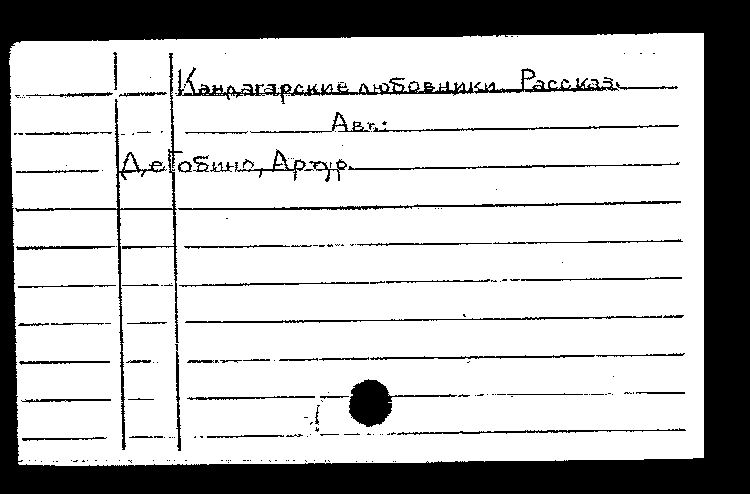 Кандагарские любовники. Рассказ.
Авт.:
Де Гобино, Артур.